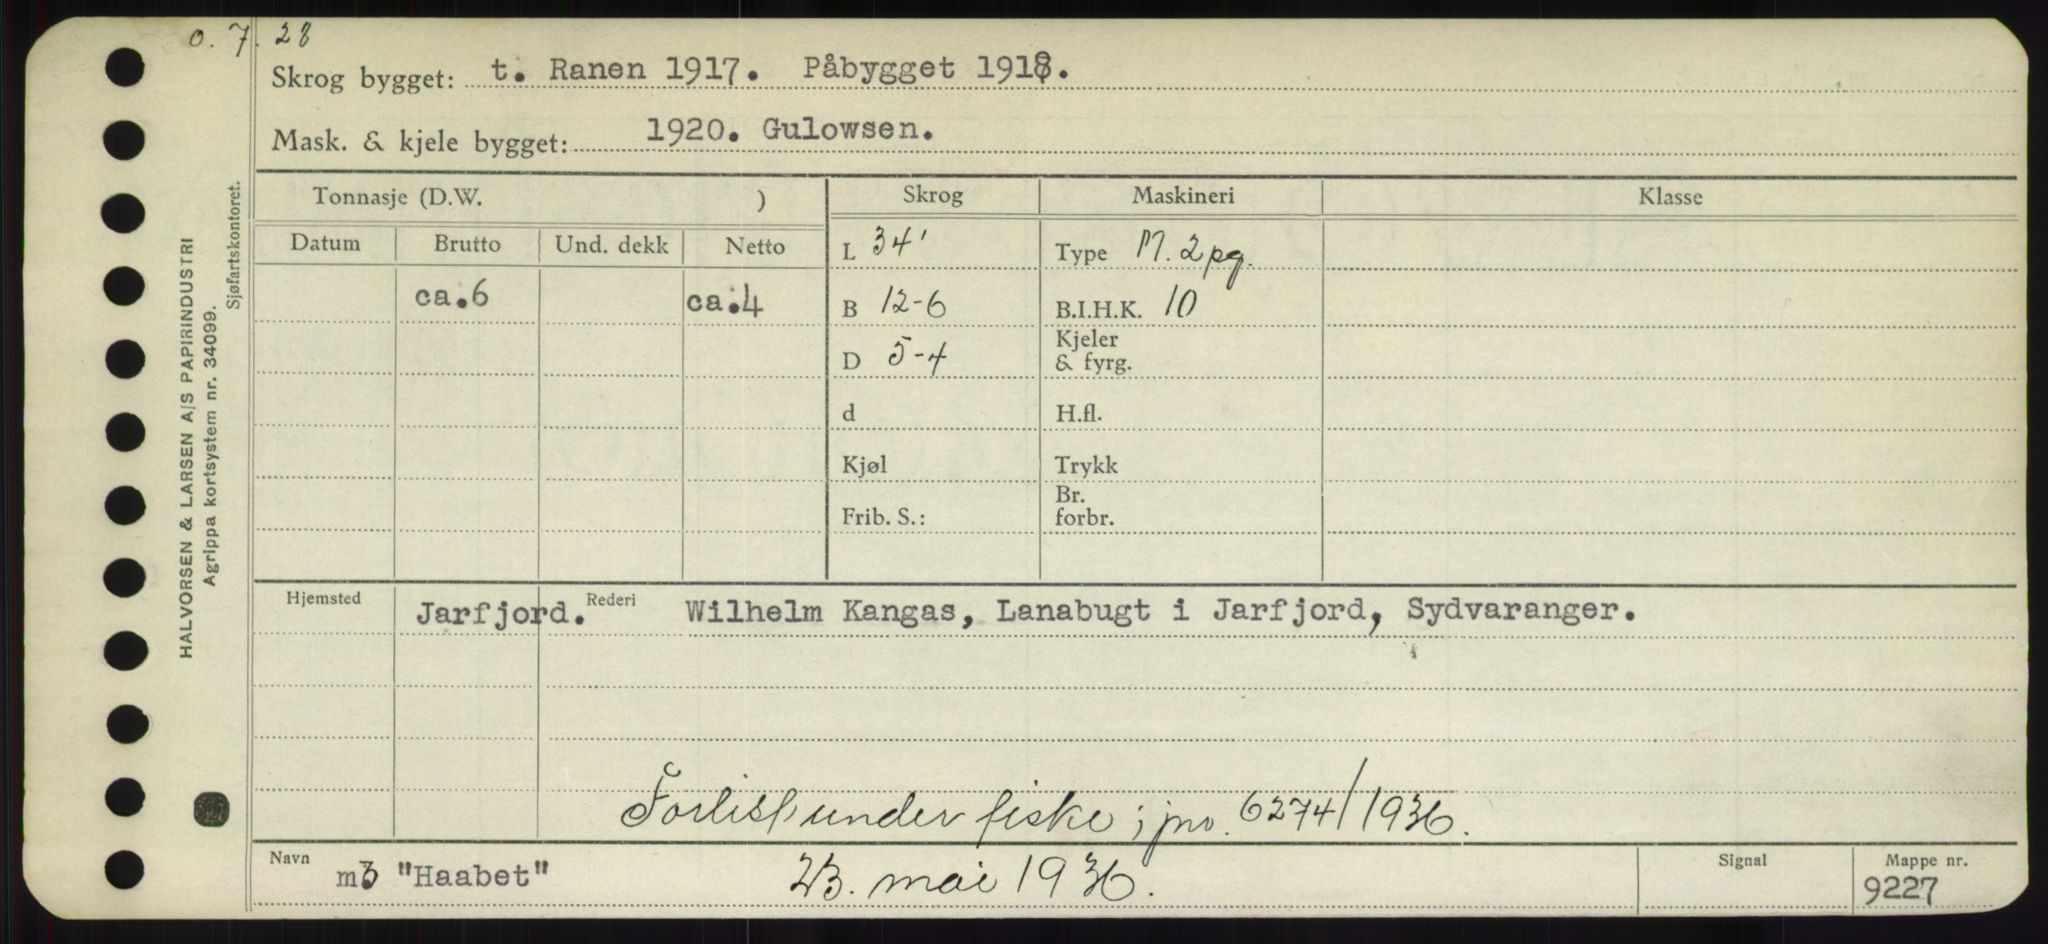 o. 7. 28
Skrog bygget: t. Ranen 1917. Påbygget 1918.
Mask. & kjele bygget: 1920. Gulowsen.
Tonnasje (D.W. ) Skrog Maskineri Klasse
Datum Brutto Und. dekk Netto
L 34' Type M. 2pg.
ca.6 ca.4 B 12-6 B.I.H.K. 10
D 5-4 Kjeler & fyrg.
d H.fl.
Kjøl Trykk
Frib. S.: Br. forbr.
Hjemsted Jarfjord. Rederi Wilhelm Kangas, Lanabugt i Jarfjord, Sydvaranger.
Forlist under fiske; jnr. 6274/1936.
Navn "Haabet" 23. mai 1936. Signal Mappe nr. 9227
HALVORSEN & LARSEN A/S PAPIRINDUSTRI
Agrippa kortsystem nr. 34099.
Sjøfartskontoret.